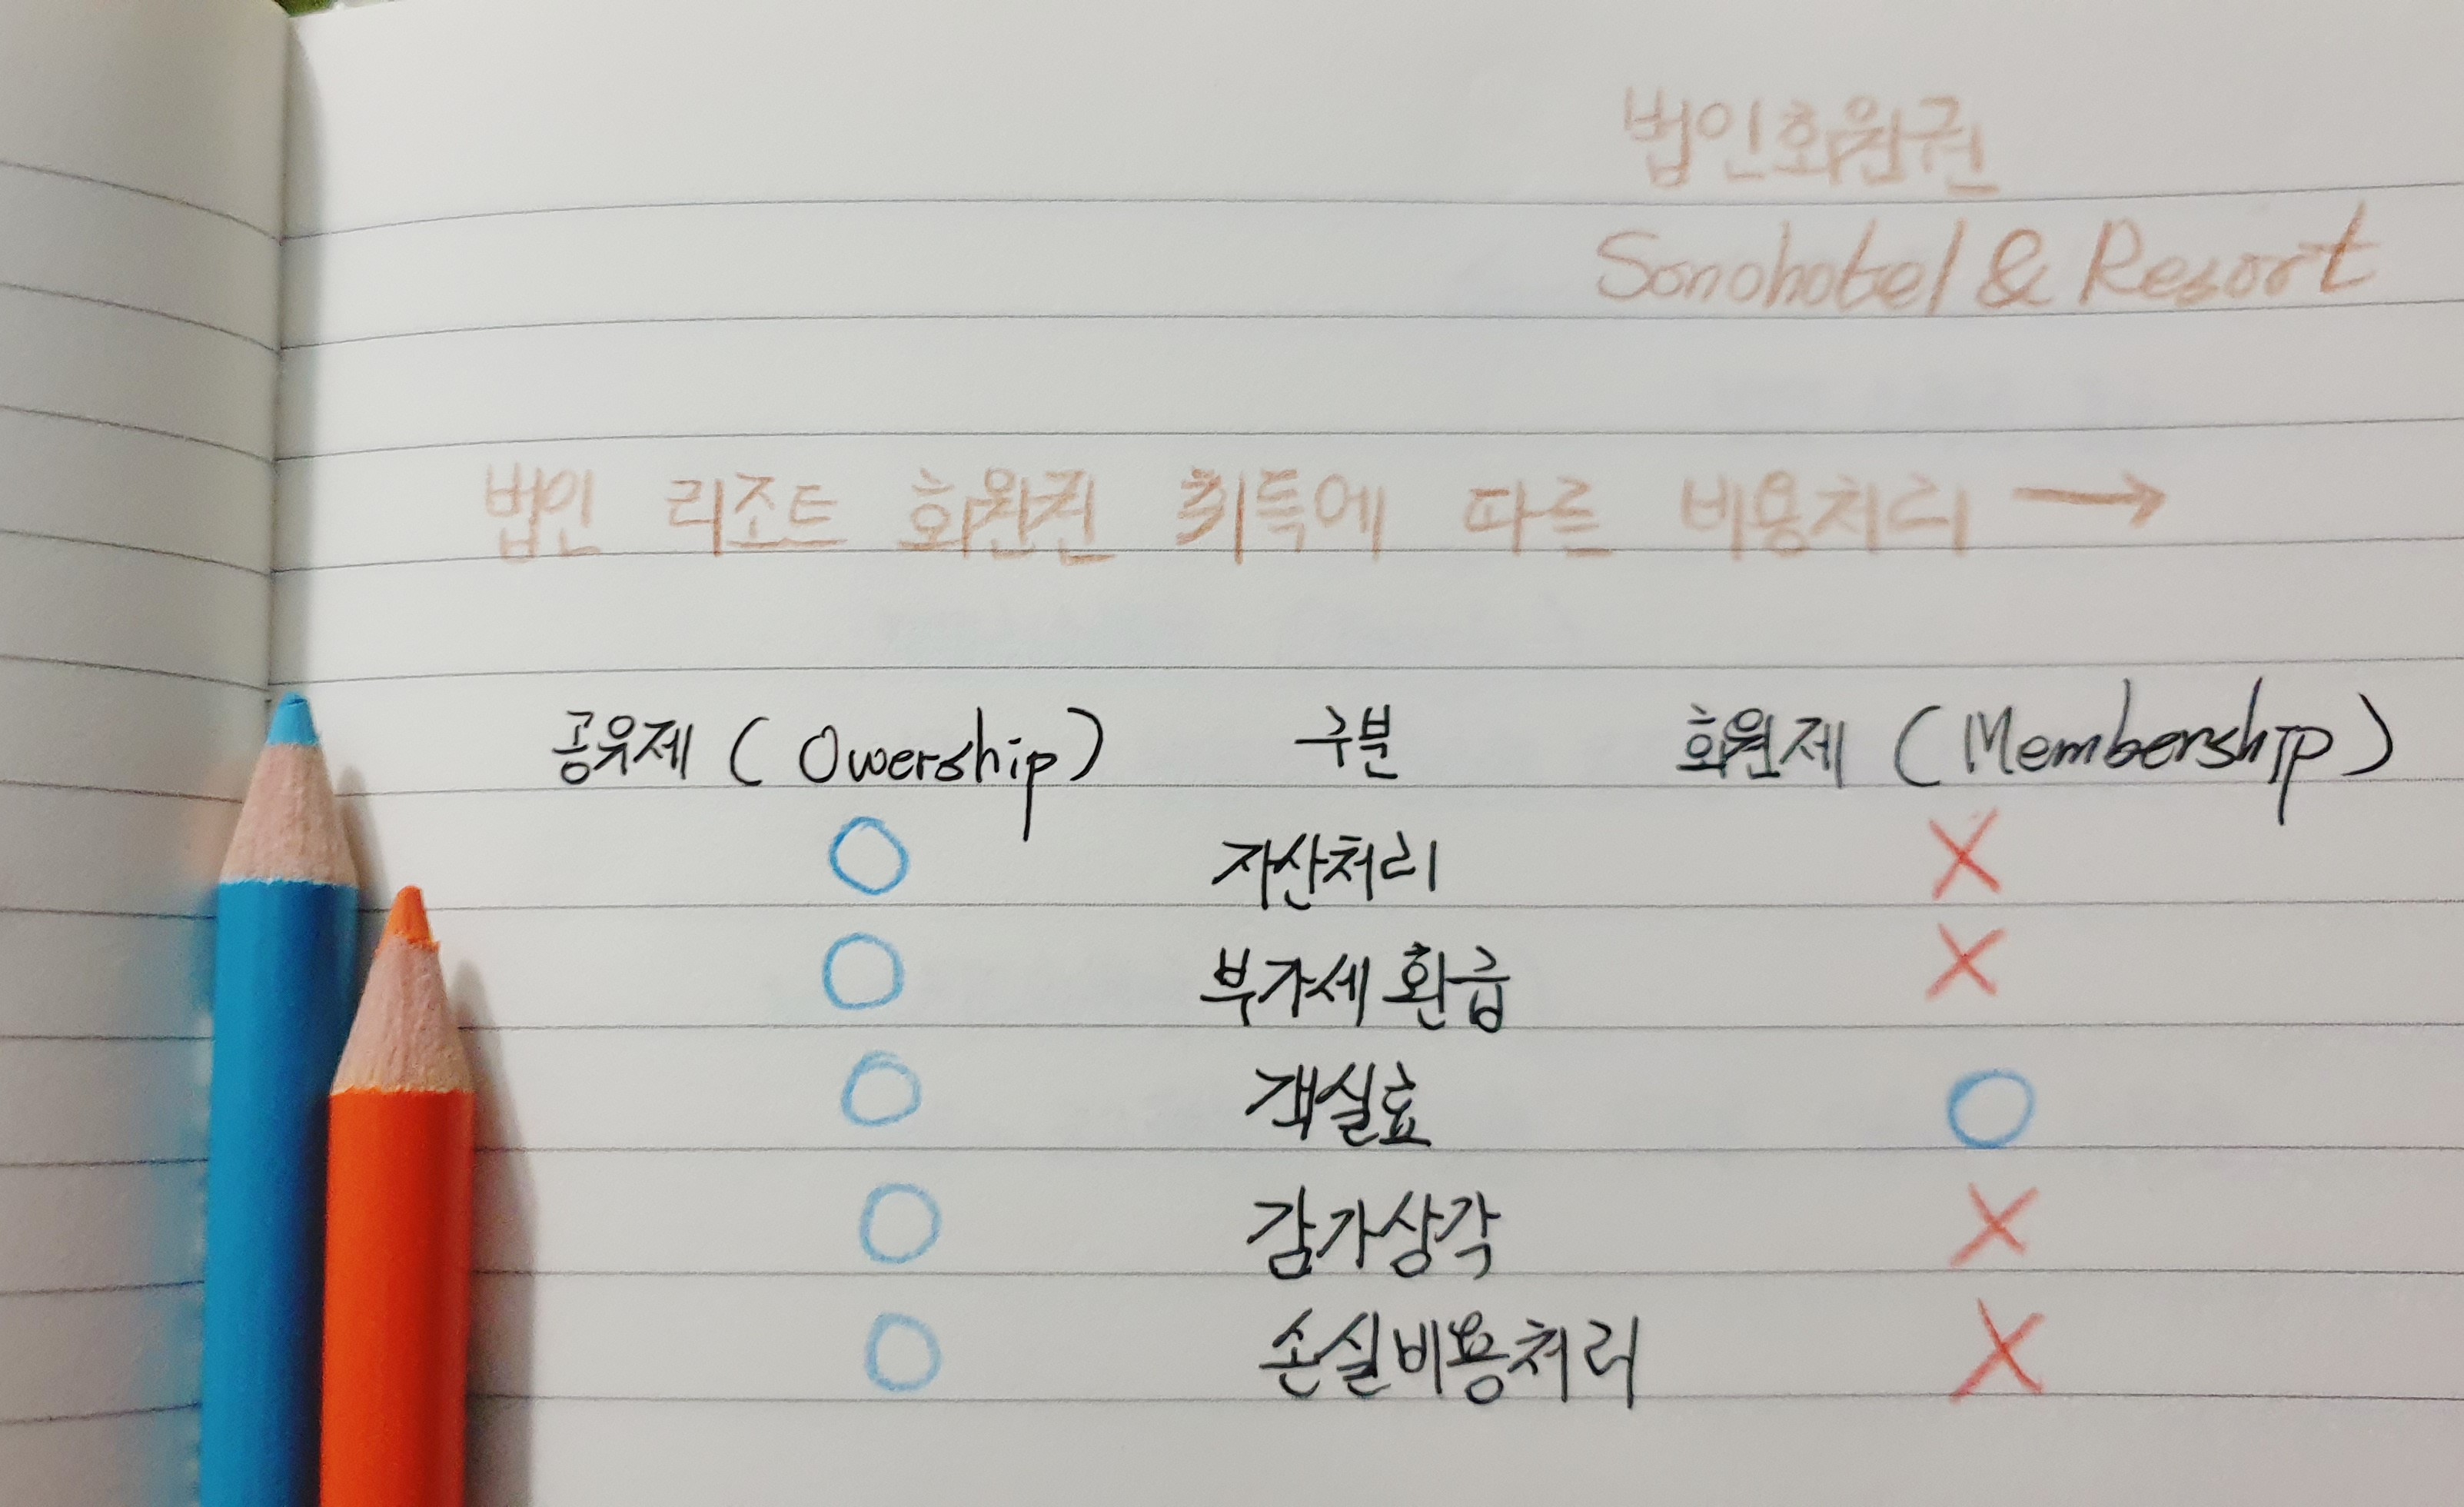 법인회원권
Sonohotel & Resort
법인 리조트 회원권 취득에 따른 비용처리 →
공유제 ( Owership ) 구분 회원제 ( Membership )
○ 자산처리 ×
○ 부가세 환급 ×
○ 객실료 ○
○ 감가상각 ×
○ 손실비용처리 ×